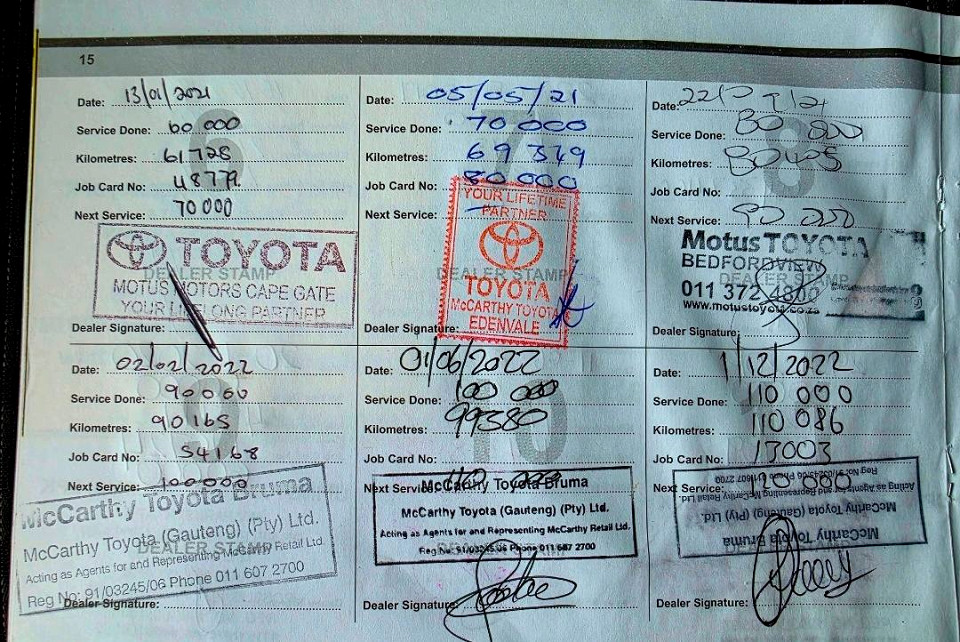 15
Date: 13/01/2021
Service Done: 60 000
Kilometres: 61728
Job Card No: 48779
Next Service: 70 000
TOYOTA
DEALER STAMP
MOTUS MOTORS CAPE GATE
YOUR LIFELONG PARTNER
Dealer Signature:
Date: 05/05/21
Service Done: 70 000
Kilometres: 69 349
Job Card No: 80 000
Next Service:
YOUR LIFETIME
PARTNER
DEALER STAMP
TOYOTA
McCARTHY TOYOTA
EDENVALE
Dealer Signature:
8
Date:
Service Done:
Kilometres:
Job Card No:
Next Service:
Motus TOYOTA
BEDFORDVIEW
DEALER STAMP
011 372 4800
www.motustoyota.co.za
Dealer Signature:
Date: 02/02/2022
Service Done: 90 000
Kilometres: 90165
Job Card No: 54168
Next Service: 100000
McCarthy Toyota Bruma
McCarthy Toyota (Gauteng) (Pty) Ltd.
DEALER STAMP
Acting as Agents for and Representing McCarthy Retail Ltd.
Reg No: 91/03245/06 Phone 011 607 2700
Dealer Signature:
10
Date: 01/06/2022
Service Done: 100 000
Kilometres: 99380
Job Card No:
Next Service:
McCarthy Toyota Bruma
McCarthy Toyota (Gauteng) (Pty) Ltd.
Acting as Agents for and Representing McCarthy Retail Ltd.
Reg No: 91/03245/06 Phone 011 607 2700
DEALER STAMP
Dealer Signature:
Date: 1/12/2022
Service Done: 110 000
Kilometres: 110 086
Job Card No: 13003
Next Service:
Reg No: 91/03245/06 Phone 011 607 2700
Acting as Agents for and Representing McCarthy Retail Ltd.
McCarthy Toyota (Gauteng) (Pty) Ltd.
McCarthy Toyota Bruma
DEALER STAMP
Dealer Signature: